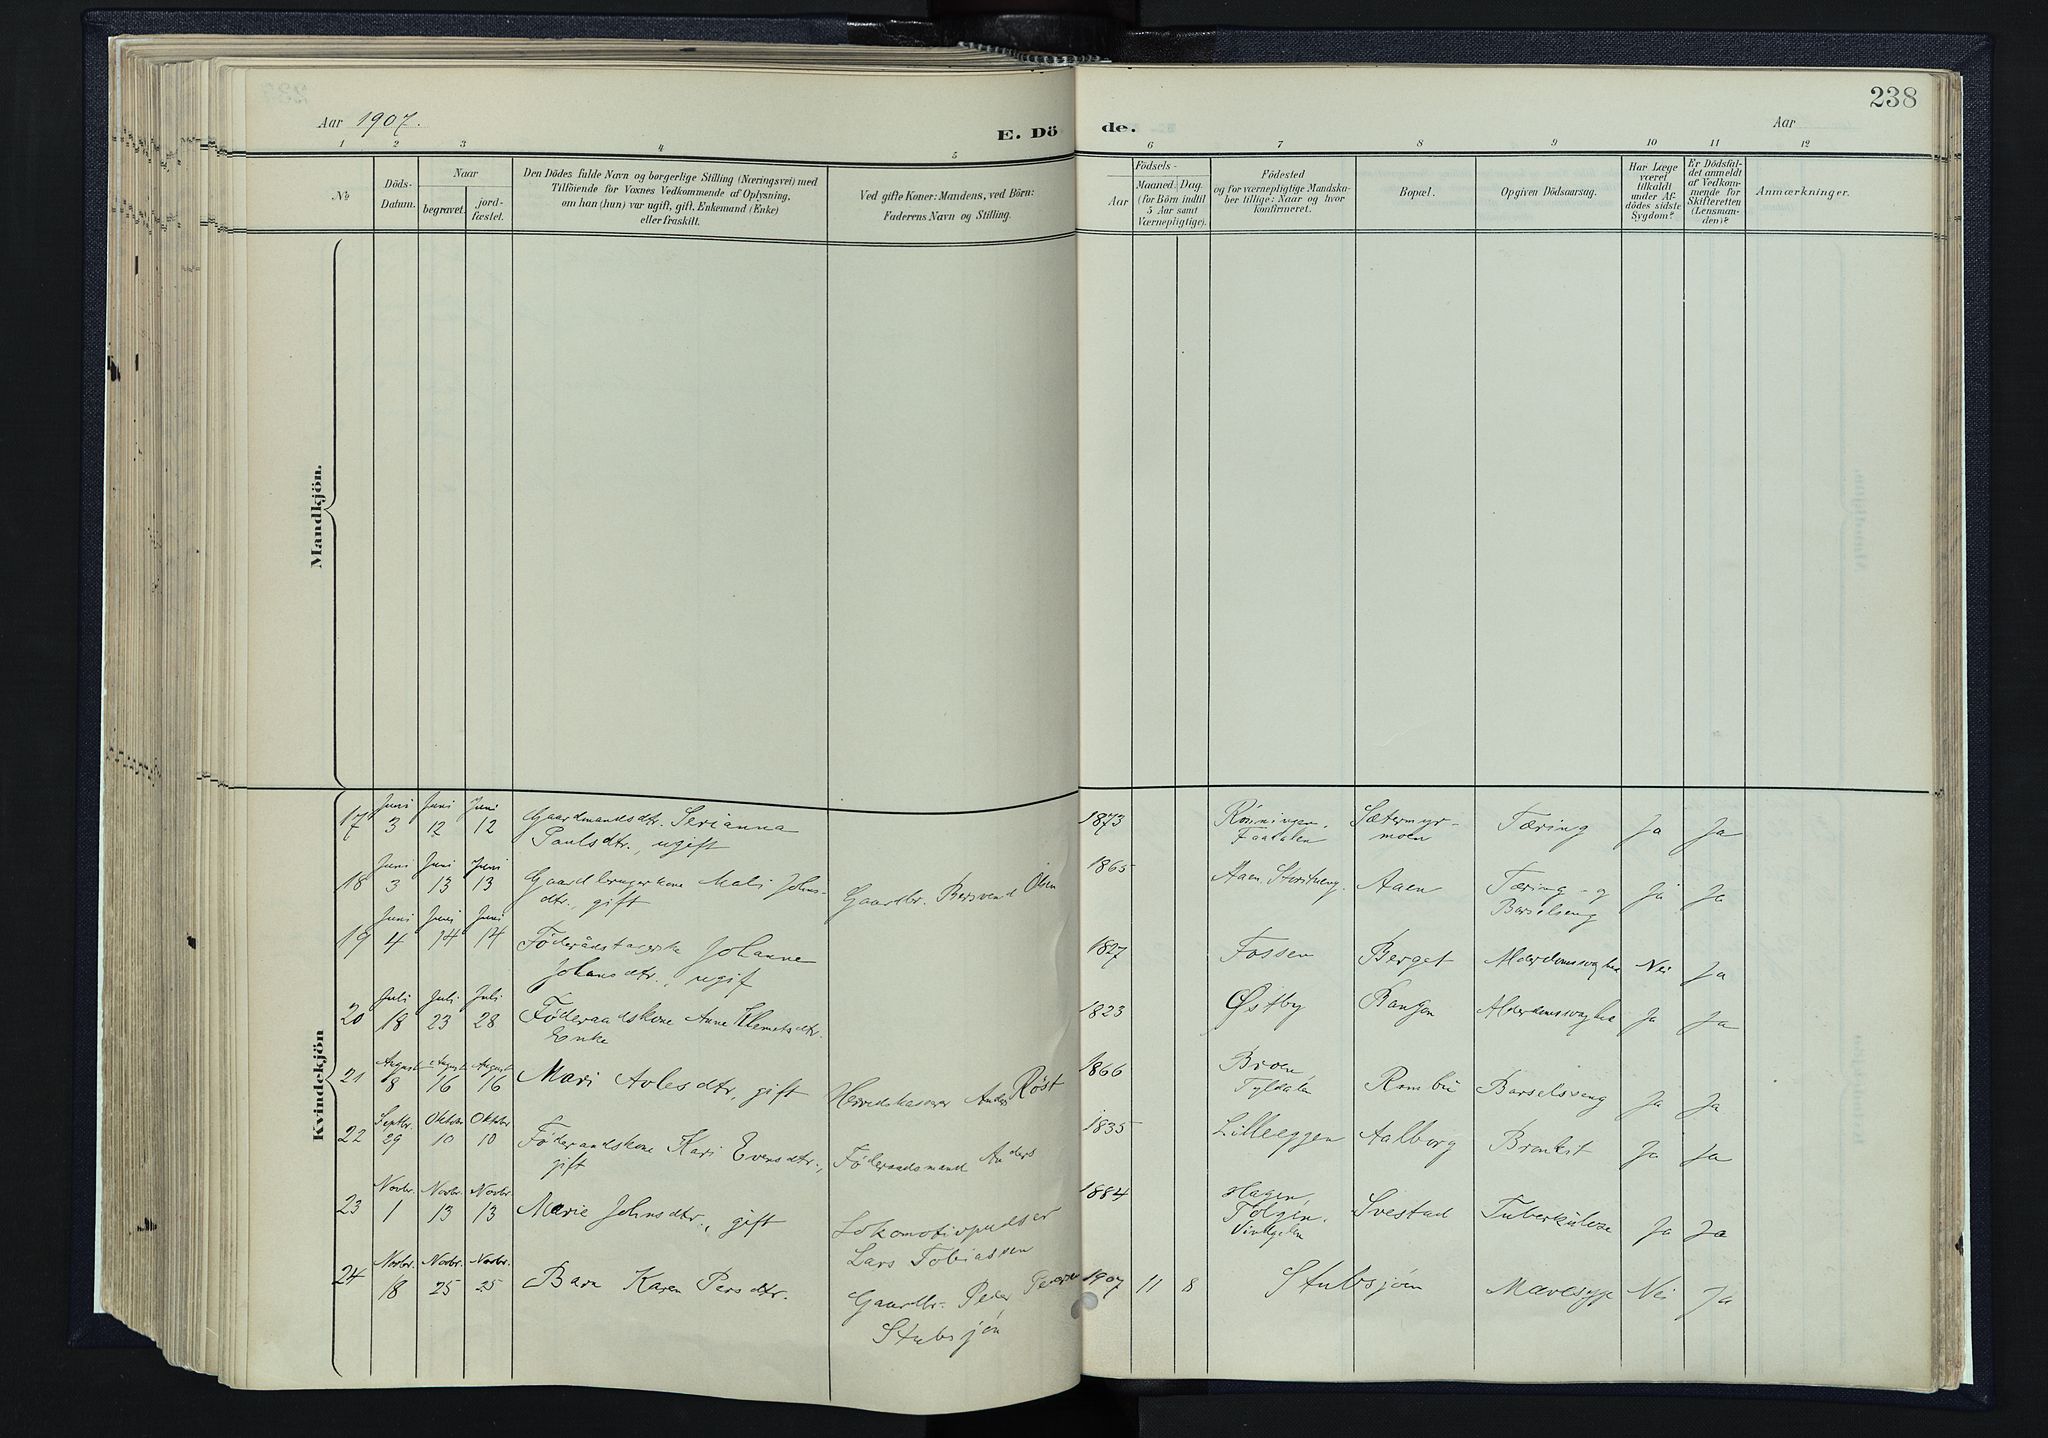 Aar 1907.
E. Dö
de.
Aar
238
1 2 3 4 5 6 7 8 9 10 11 12
No
Döds-
Datum.
Naar
begravet.
jord-
fæstet.
Den Dödes fulde Navn og borgerlige Stilling (Næringsvei) med
Tilföiende for Voxnes Vedkommende af Oplysning,
om han (hun) var ugift, gift, Enkemand (Enke)
eller fraskilt.
Ved gifte Koner: Mandens, ved Börn:
Faderens Navn og Stilling.
Födsels-
Aar
Maaned. Dag.
(for Börn indtil
5 Aar samt
Værnepligtige).
Födested
og for værnepligtige Mandska-
ber tillige: Naar og hvor
konfirmeret.
Bopæl.
Opgiven Dödsaarsag.
Har Læge
været
tilkaldt
under Af-
dödes sidste
Sygdom?
Er Dödsfal-
det anmeldt
af Vedkom-
mende for
Skifteretten
(Lensman-
den)?
Anmærkninger.
Mandkjön.
Kvindekjön
17 Juni 3 Juni 12 Juni 12 Gaardmandsdtr. Serianna
Paulsdtr., ugift
1873 Rönningen, Faadalen Sætermyr-
moen Tæring Ja Ja
18 Juni 3 Juni 13 Juni 13 Gaardbrugerkone Mali Johns-
dtr., gift
Gaardbr. Bersvend Olsen 1865 Aaen, Aaen Tæring og
Barselseng Ja Ja
19 Juni 4 Juni 14 Juni 14 Johanne
Johansdtr., ugif
1827 Fossen Berget Nei Ja
20 Juli 18 Juli 23 Juli 28 Föderaadskone Anne Klemetsdtr.
Enke
1823 Østby Ja Ja
21 August 8 August 16 August 16 Mari Avlesdtr, gift Herredskasserer Anders Röst 1866 Broen,
Tyldalen Rambu Barselseng Ja Ja
22 Septbr. 29 Oktober 10 Oktobr 10 Föderaadskone Kari Evensdtr.,
gift
Föderaadsmand Anders 1835 Lilleeggen Aalborg Bronkit Ja Ja
23 Novbr. 1 Novbr. 13 Novbr. 13 Marie Johnsdtr., gift Lokomotivpudser
Lars Tobiassen
1884 Hagen,
Tolgen,
Vingelen Svestad Tuberkulose Ja Ja
24 Novbr. 18 Novbr. 25 Novbr. 25 Barn Karen Persdtr. Gaardbr. Peder Pedersen
Stubsjön
1907 11 8 Stubsjöen Mavesyge Nei Ja